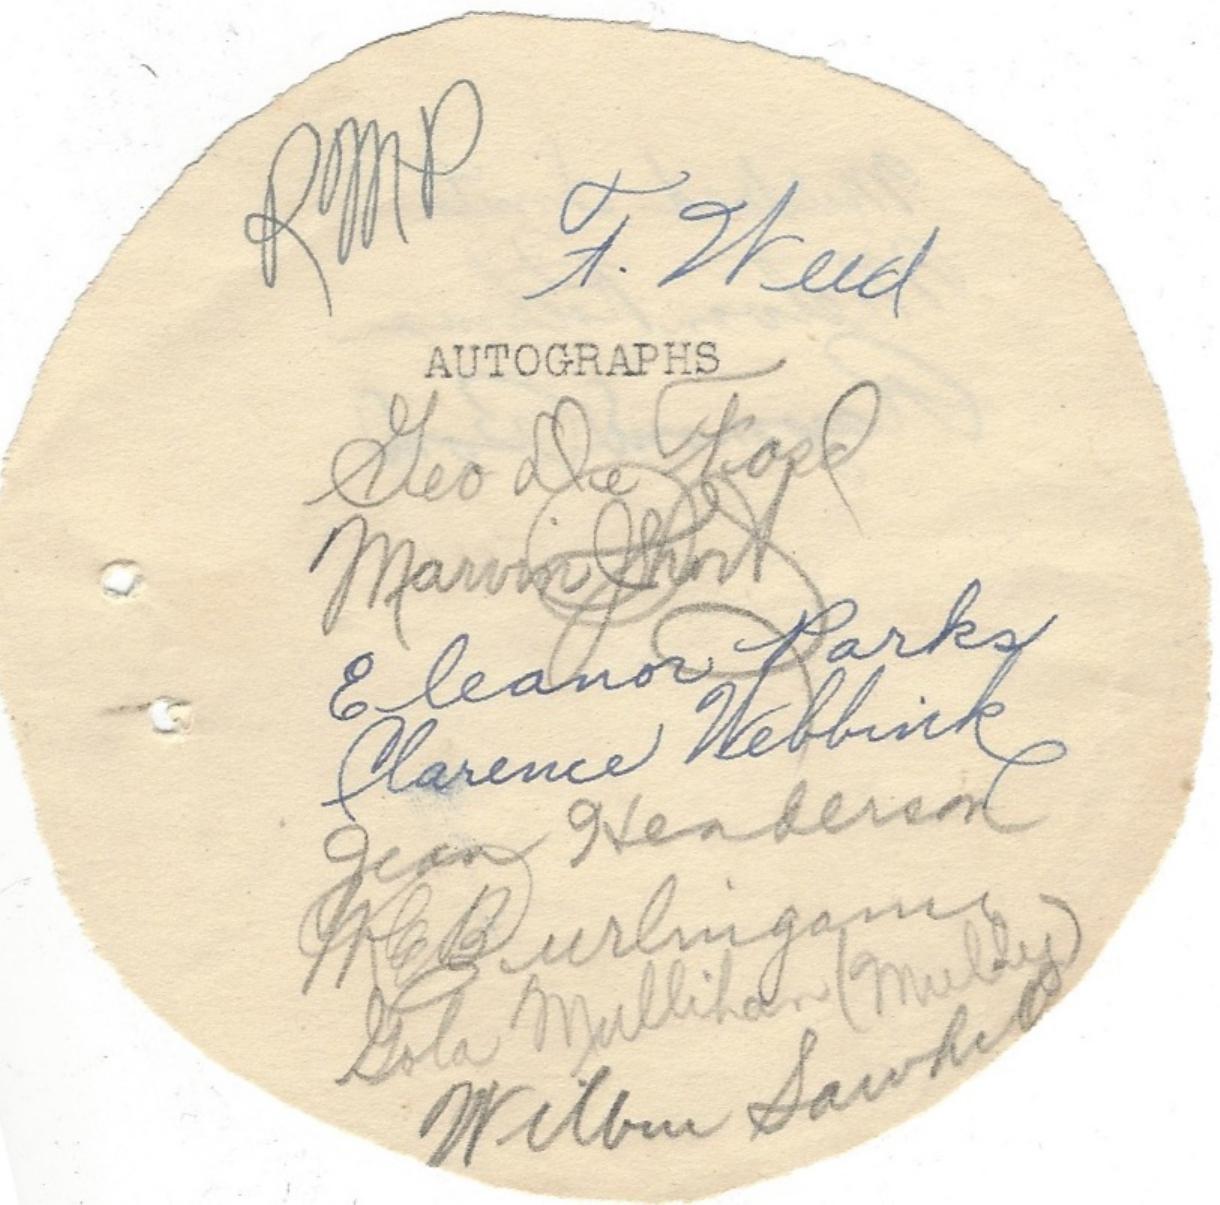 RMP
F. Weed
AUTOGRAPHS
Geo De
Marvin Short
Eleanor Parks
Clarence Webbink
Jean Henderson
W E Burlingame
Mullihan
Wilbur Sawhill